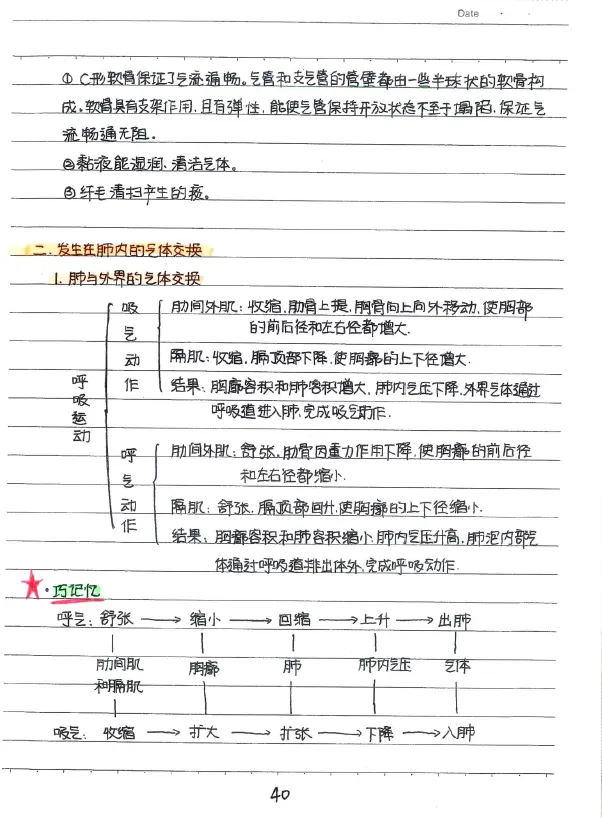 Date
① C形软骨保证了气流通畅。气管和支气管的管壁都由一些半球状的软骨构
成。软骨具有支架作用,且有弹性,能使气管保持开放状态不至于塌陷,保证气
流畅通无阻.
②黏液能湿润、清洁气体。
③纤毛清扫产生的痰。
二.发生在肺内的气体交换
1.肺与外界的气体交换
呼吸运动
吸气动作
肋间外肌:收缩,肋骨上提,胸骨向上向外移动,使胸部
的前后径和左右径都增大.
膈肌:收缩,膈顶部下降,使胸廓的上下径增大.
结果:胸廓容积和肺容积增大,肺内气压下降,外界气体通过
呼吸道进入肺,完成吸气动作.
呼气动作
肋间外肌:舒张,肋骨因重力作用下降,使胸廓的前后径
和左右径都缩小.
膈肌:舒张,膈顶部回升,使胸廓的上下径缩小.
结果:胸廓容积和肺容积缩小,肺内气压升高,肺泡内部气
体通过呼吸道排出体外,完成呼吸动作.
★·巧记忆
呼气:舒张→缩小→回缩→上升→出肺
肋间肌 胸廓 肺 肺内气压 气体
和膈肌
吸气:收缩→扩大→扩张→下降→入肺
40